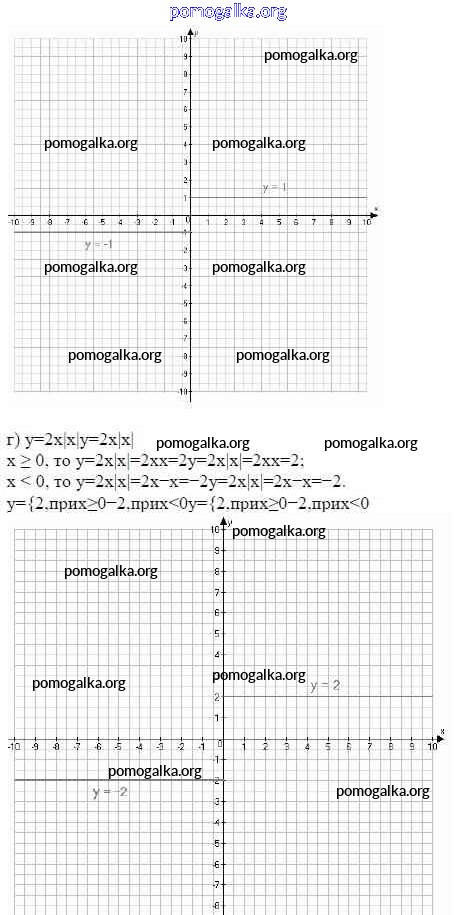 pomogalka.org
y
10
pomogalka.org
9
8
7
6
5
pomogalka.org pomogalka.org
4
3
2
y = 1
1
x
-10 -9 -8 -7 -6 -5 -4 -3 -2 -1 0 1 2 3 4 5 6 7 8 9 10
-1
y = -1
-2
pomogalka.org pomogalka.org
-3
-4
-5
-6
-7
pomogalka.org pomogalka.org
-8
-9
-10
г) y=2x|x|y=2x|x| pomogalka.org pomogalka.org
x ≥ 0, то y=2x|x|=2xx=2y=2x|x|=2xx=2;
x < 0, то y=2x|x|=2x−x=−2y=2x|x|=2x−x=−2.
y={2,прих≥0−2,прих<0y={2,прих≥0−2,прих<0
y
10 pomogalka.org
9
8
pomogalka.org
7
6
5
4
3
pomogalka.org pomogalka.org
y = 2
2
1
x
-10 -9 -8 -7 -6 -5 -4 -3 -2 -1 0 1 2 3 4 5 6 7 8 9 10
-1
pomogalka.org
-2
y = -2
pomogalka.org
-3
-4
-5
-6
-7
-8